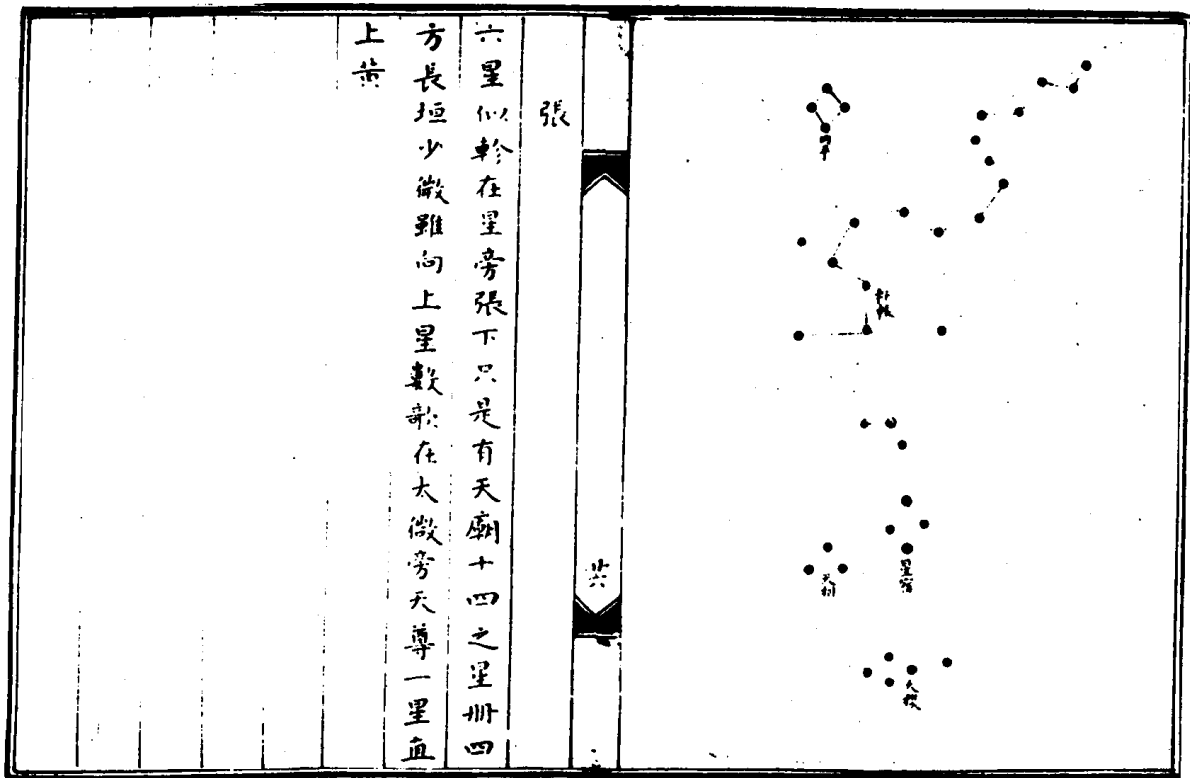 內平
軒轅
星宿
天相
天稷
張
六星似軫在星旁張下只是有天廟十四之星冊四
方長垣少微雖向上星數歌在太微旁天尊一星直
上黃
廿六